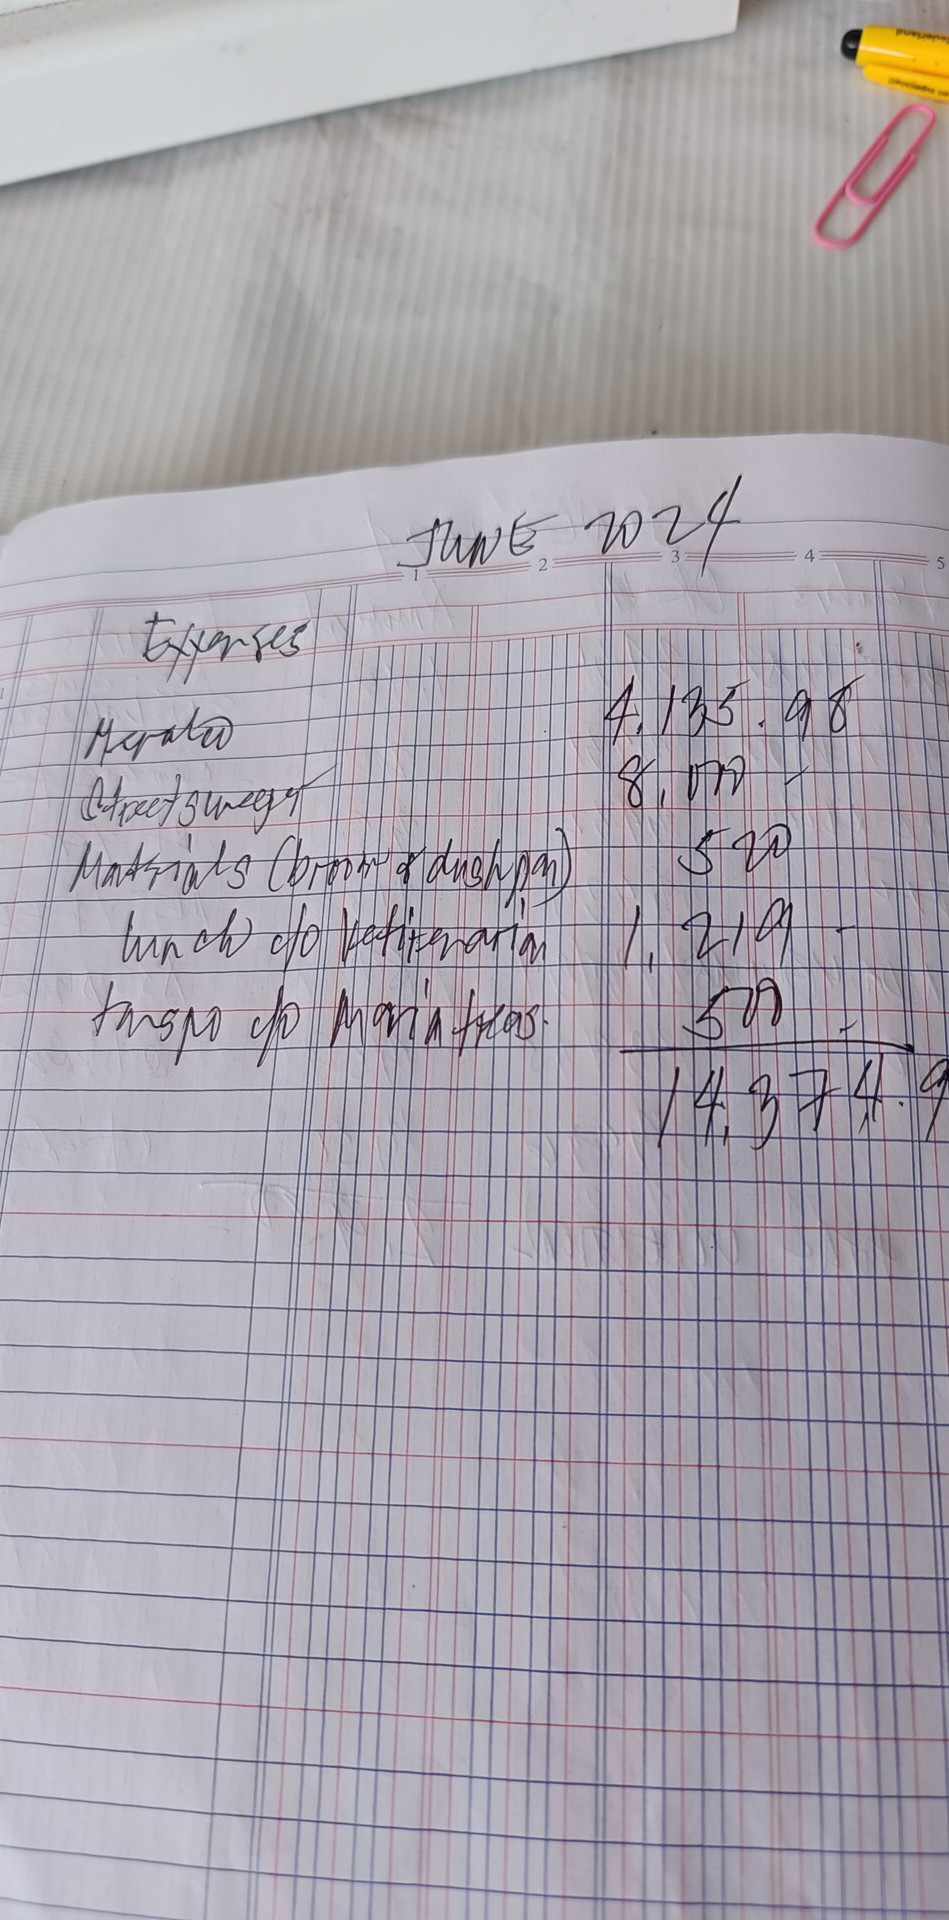 Nederland
JUNE 2024
1 2 3 4 5
Expenses
Meralco 4,135.98
Streetsweeper 8,000 -
Materials (broom & dushpan) 520
lunch c/o Vetirenarian 1,219 -
tanspo c/o Marin 500 -
14,374.9